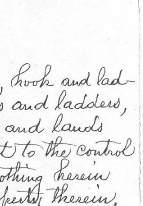 , hook and lad-
s and ladders,
and lands
t to the control
othing herein
perty therein,